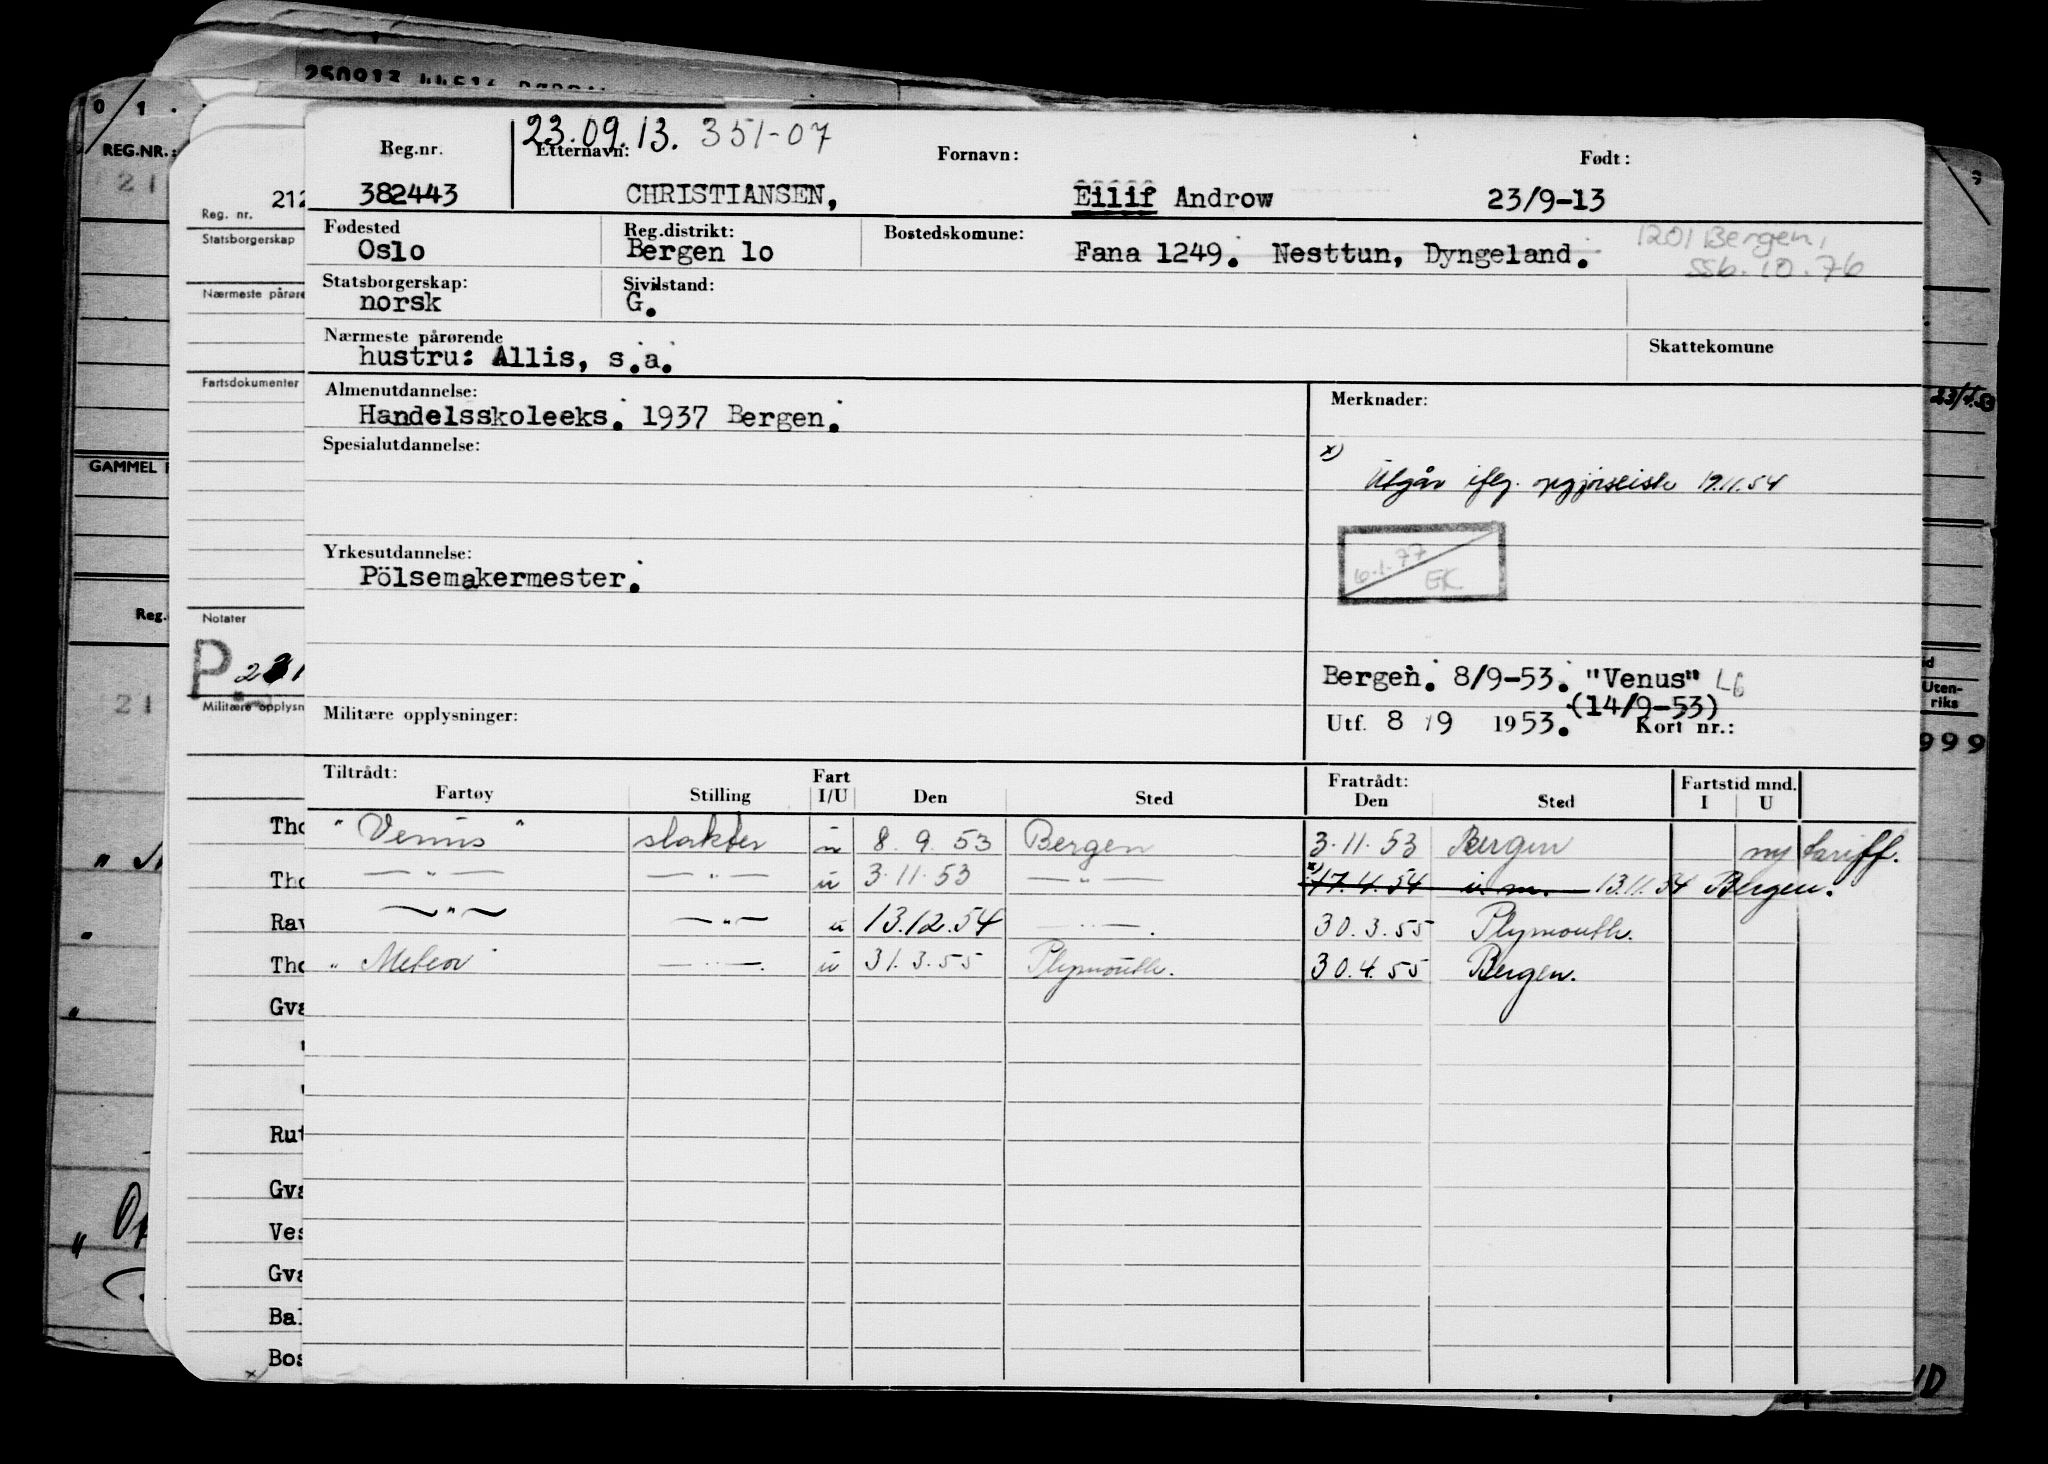 250913
0 1
REG.NR.:
21
GAMMEL
Reg.
21
212
Reg. nr.
Statsborgerskap
Nærmeste pårøre
Fartsdokumenter
Notater
P
Militære opplysn
Tho
Tho
Rav
Tho
Gva
Rut
Gva
Ves
Gva
Bal
Bos
23.09.13. 351-07
Reg.nr. Etternavn: Fornavn: Født:
382443 CHRISTIANSEN, Eilif Androw 23/9-13
Fødested Reg.distrikt: Bostedskomune:
Oslo Bergen 10 Fana 1249. Nesttun, Dyngeland. 1201 Bergen,
SSB. 10. 76
Statsborgerskap: Sivilstand:
norsk G.
Nærmeste pårørende Skattekomune
hustru: Allis, s.a.
Almenutdannelse: Merknader:
Handelsskoleeks. 1937 Bergen.
Spesialutdannelse:
x) Utgår iflg. oppgjørsliste 19.11.54
Yrkesutdannelse:
Pölsemakermester.
6.1.77 EK
Bergen. 8/9-53. "Venus" LG
(14/9-53)
Militære opplysninger: Utf. 8 / 9 1953. Kort nr.:
Tiltrådt: Fart Fratrådt: Fartstid mnd.
Fartøy Stilling I/U Den Sted Den Sted I U
"Venus" slakter u 8. 9. 53 Bergen 3.11.53 Bergen ny tariff.
—"— —"— u 3.11.53 —"— x) 17.4.54 u.m. 13.11.54 Bergen.
—"— —"— u 13.12.54 —"—. 30.3.55 Plymouth.
"Meteor" —"—. u 31.3.55 Plymouth. 30.4.55 Bergen.
23/1.53
Uten-
riks
999